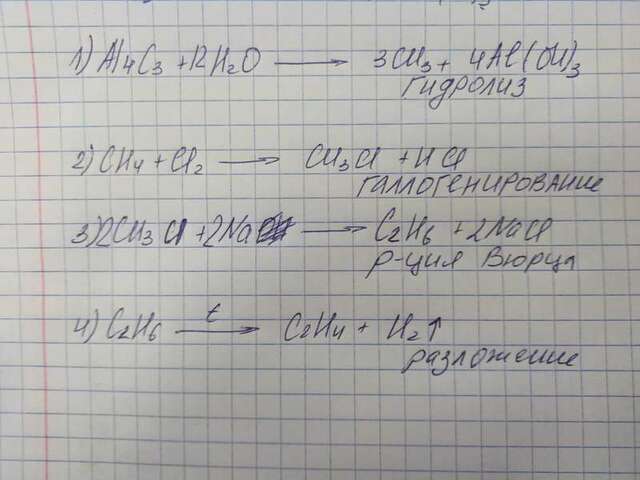 1) Al4C3 + 12H2O → 3CH3 + 4Al(OH)3
гидролиз
2) CH4 + Cl2 → CH3Cl + HCl
галлогенирование
3) 2CH3Cl + 2Na → C2H6 + 2NaCl
р-ция Вюрца
4) C2H6 t → C2H4 + H2↑
разложение